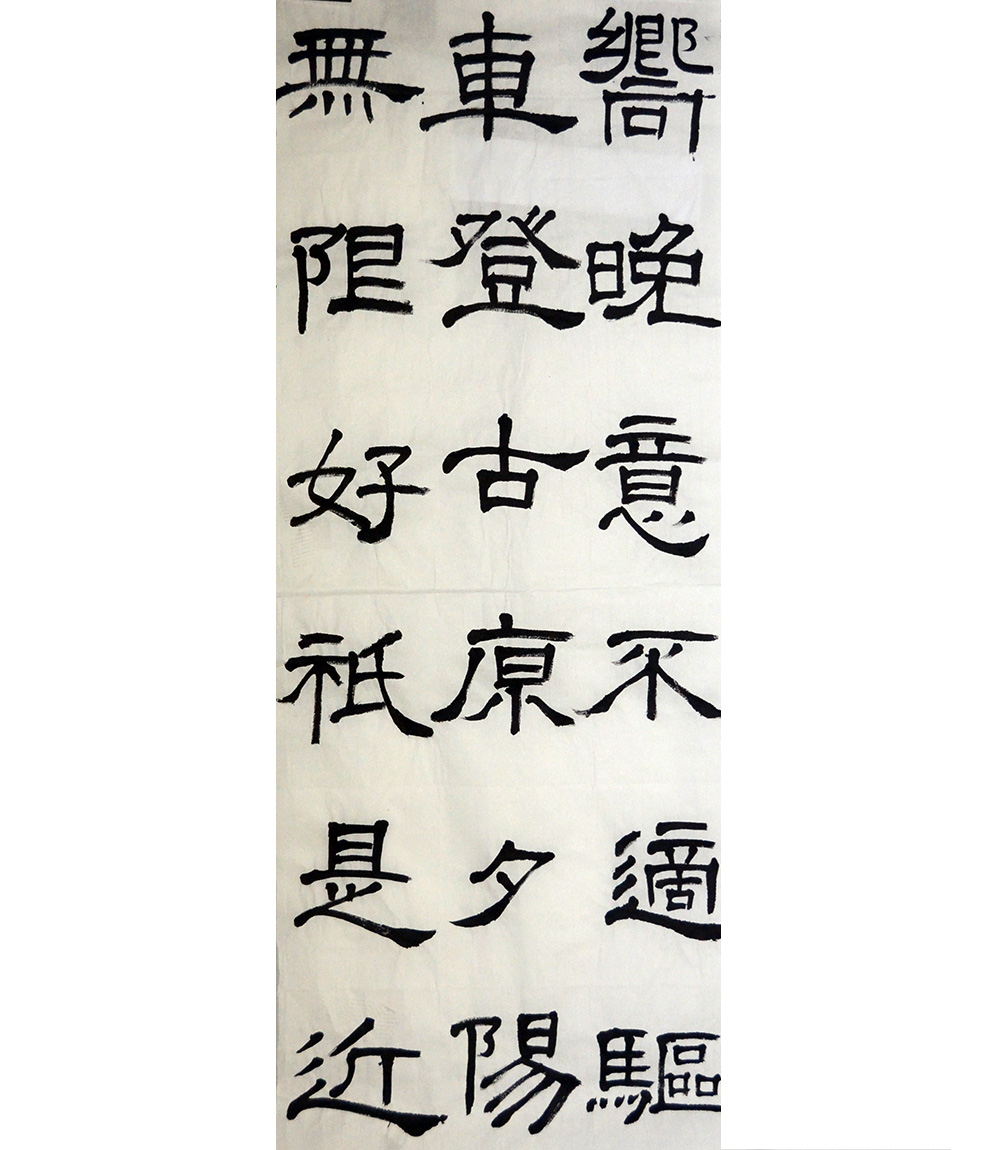 嚮晚意不適驅
車登古原夕陽
無限好祇是近